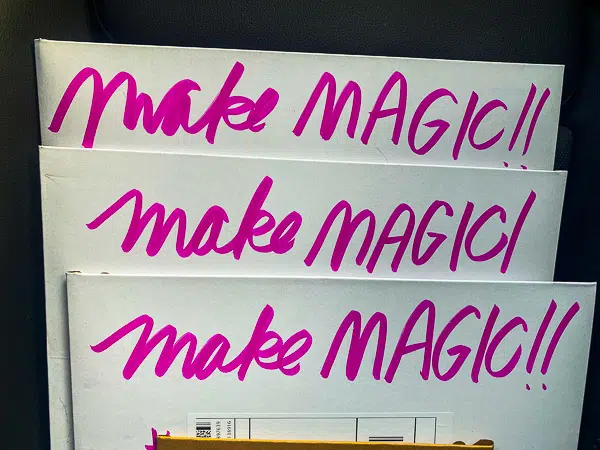 make MAGIC!!
make MAGIC!
make MAGIC!!